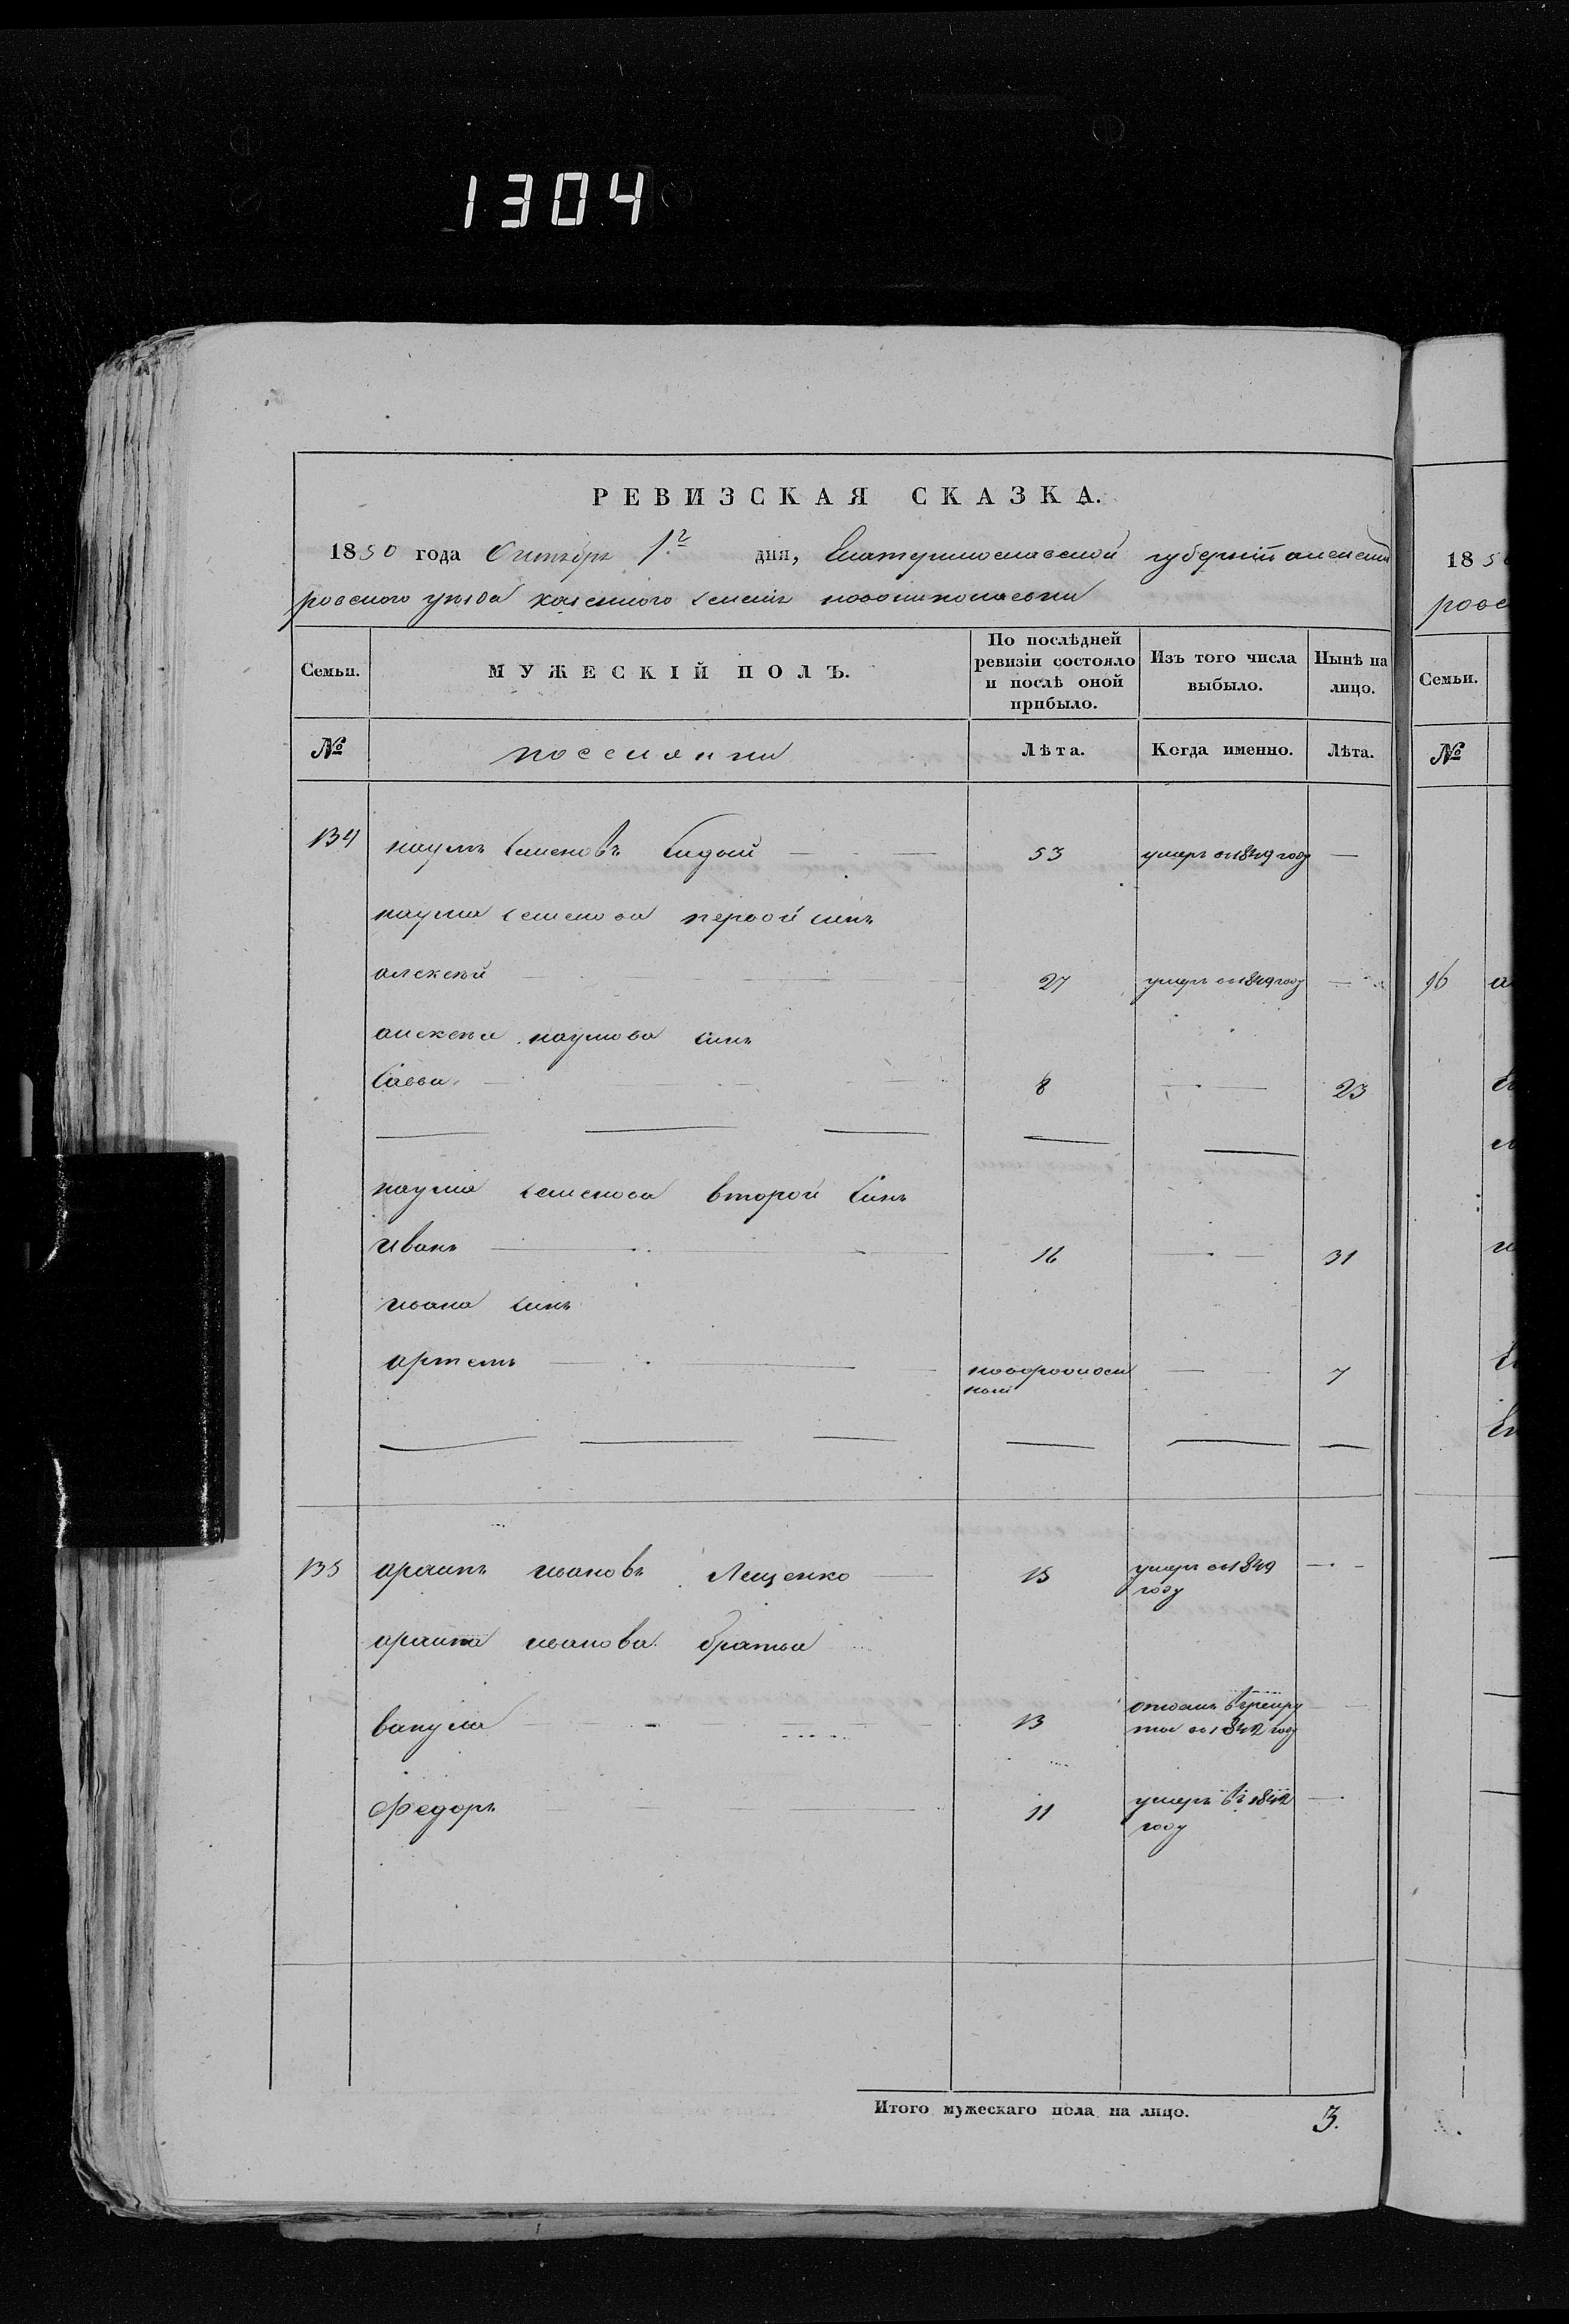 1304
РЕВИЗСКАЯ СКАЗКА.
1850 года Октября 1г дня, Екатеринославской губерніи александ
ровского уезда казенного селенія новониколаевки
Семьи. МУЖЕСКІЙ ПОЛЪ. По послѣдней ревизіи состояло и послѣ оной прибыло. Изъ того числа выбыло. Нынѣ на лицо.
№ поселянии Лѣта. Когда именно. Лѣта.
134 наумъ Семеновъ 53 умеръ в 1849 году —
наума семенова первой синъ
алексей 27 умеръ в 1849 году —
алексея наумова синъ
Савва 8 — 23
наума семенова второй Синъ
Иванъ 16 — 31
ивана синъ
артемъ новорожден ный — 7
135 ивановъ Лещенко 15 умеръ в 1849 году —
иванова братья
вакула 13 отданъ в рекру ты в 1842 году
Федоръ 11 умеръ въ 1842 году —
Итого мужескаго пола на лицо. 3.
1850
ровс
Семьи.
№